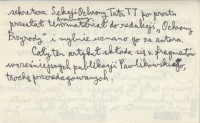 sekretarz Sekcji Ochrony Tatr TT po prostu
przesłał ten materiał do redakcji „Ochrony
Przyrody” i mylnie uznano go za autora.
Cały ten artykuł składa się z fragmentów
wcześniejszych publikacji Pawlikowskiego,
trochę przeredagowanych.